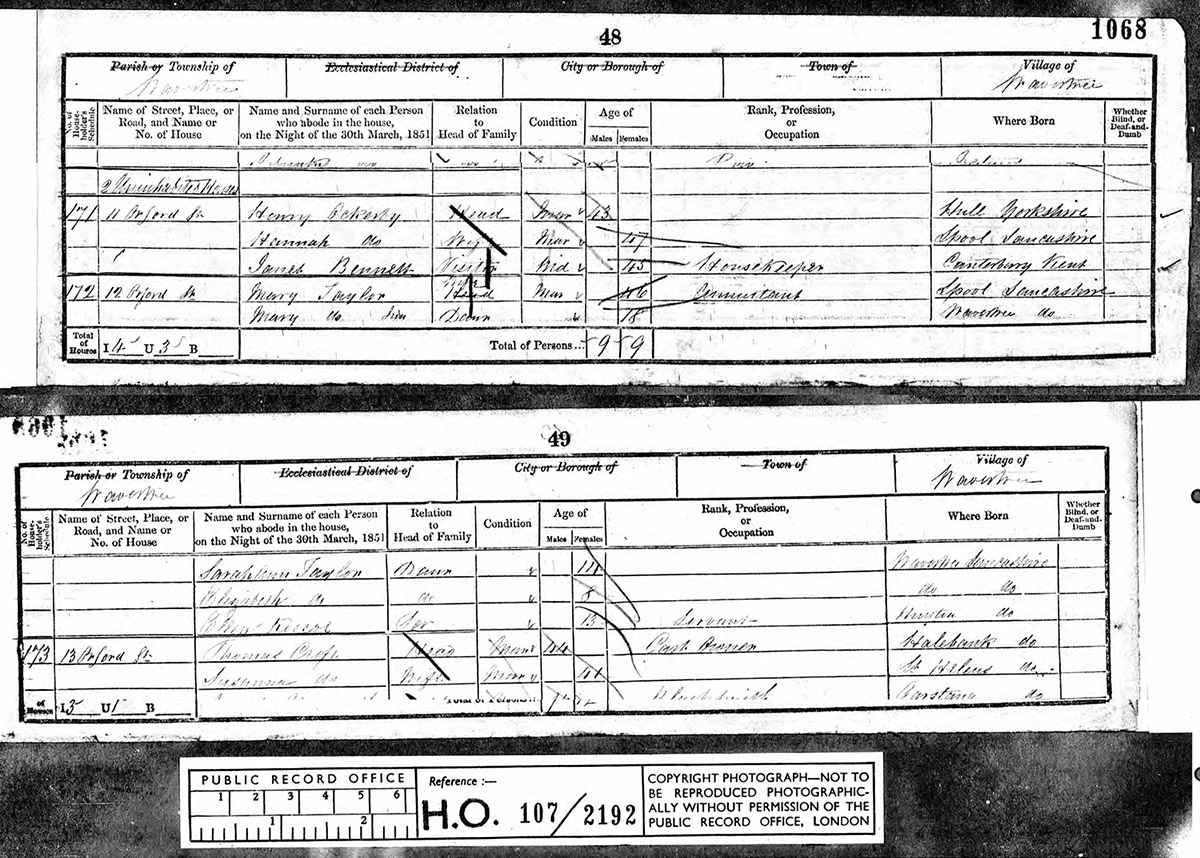 48
1068
Parish or Township of
Wavertree
Ecclesiastical District of
City or Borough of
Town of
Village of
Wavertree
No. of House-holder's Schedule
Name of Street, Place, or Road, and Name or No. of House
Name and Surname of each Person who abode in the house, on the Night of the 30th March, 1851
Relation to Head of Family
Condition
Age of
Males Females
Rank, Profession, or Occupation
Where Born
Whether Blind, or Deaf-and-Dumb
2 Uninhabited Houses
171 11 Orford St Henry Ockerby Head Mar 43 Hull Yorkshire
Hannah do Wife Mar 47 Lpool Lancashire
Janet Bennett Visitor Wid 45 Housekeeper Canterbury Kent
172 12 Orford St Mary Taylor Wife Head Mar 46 Annuitant Lpool Lancashire
Mary do Daur 18 Wavertree do
Total of Houses I 4 U 3 B Total of Persons... 9 9
49
Parish or Township of
Wavertree
Ecclesiastical District of
City or Borough of
Town of
Village of
Wavertree
No. of House-holder's Schedule
Name of Street, Place, or Road, and Name or No. of House
Name and Surname of each Person who abode in the house, on the Night of the 30th March, 1851
Relation to Head of Family
Condition
Age of
Males Females
Rank, Profession, or Occupation
Where Born
Whether Blind, or Deaf-and-Dumb
Sarah Ann Taylor Daur 11 Wavertree Lancashire
Elizabeth do do 8 do do
Ellen Roscoe Ser 13 Servant do
173 13 Orford St Thomas Croft Head Mar 44 Cart Owner Halebank do
Susanna do Wife Mar 41 St Helens do
of Houses I 3 U 1 B Total of Persons Garstang do
PUBLIC RECORD OFFICE
1 2 3 4 5 6
1 2
Reference :—
H.O. 107/2192
COPYRIGHT PHOTOGRAPH—NOT TO
BE REPRODUCED PHOTOGRAPHIC-
ALLY WITHOUT PERMISSION OF THE
PUBLIC RECORD OFFICE, LONDON